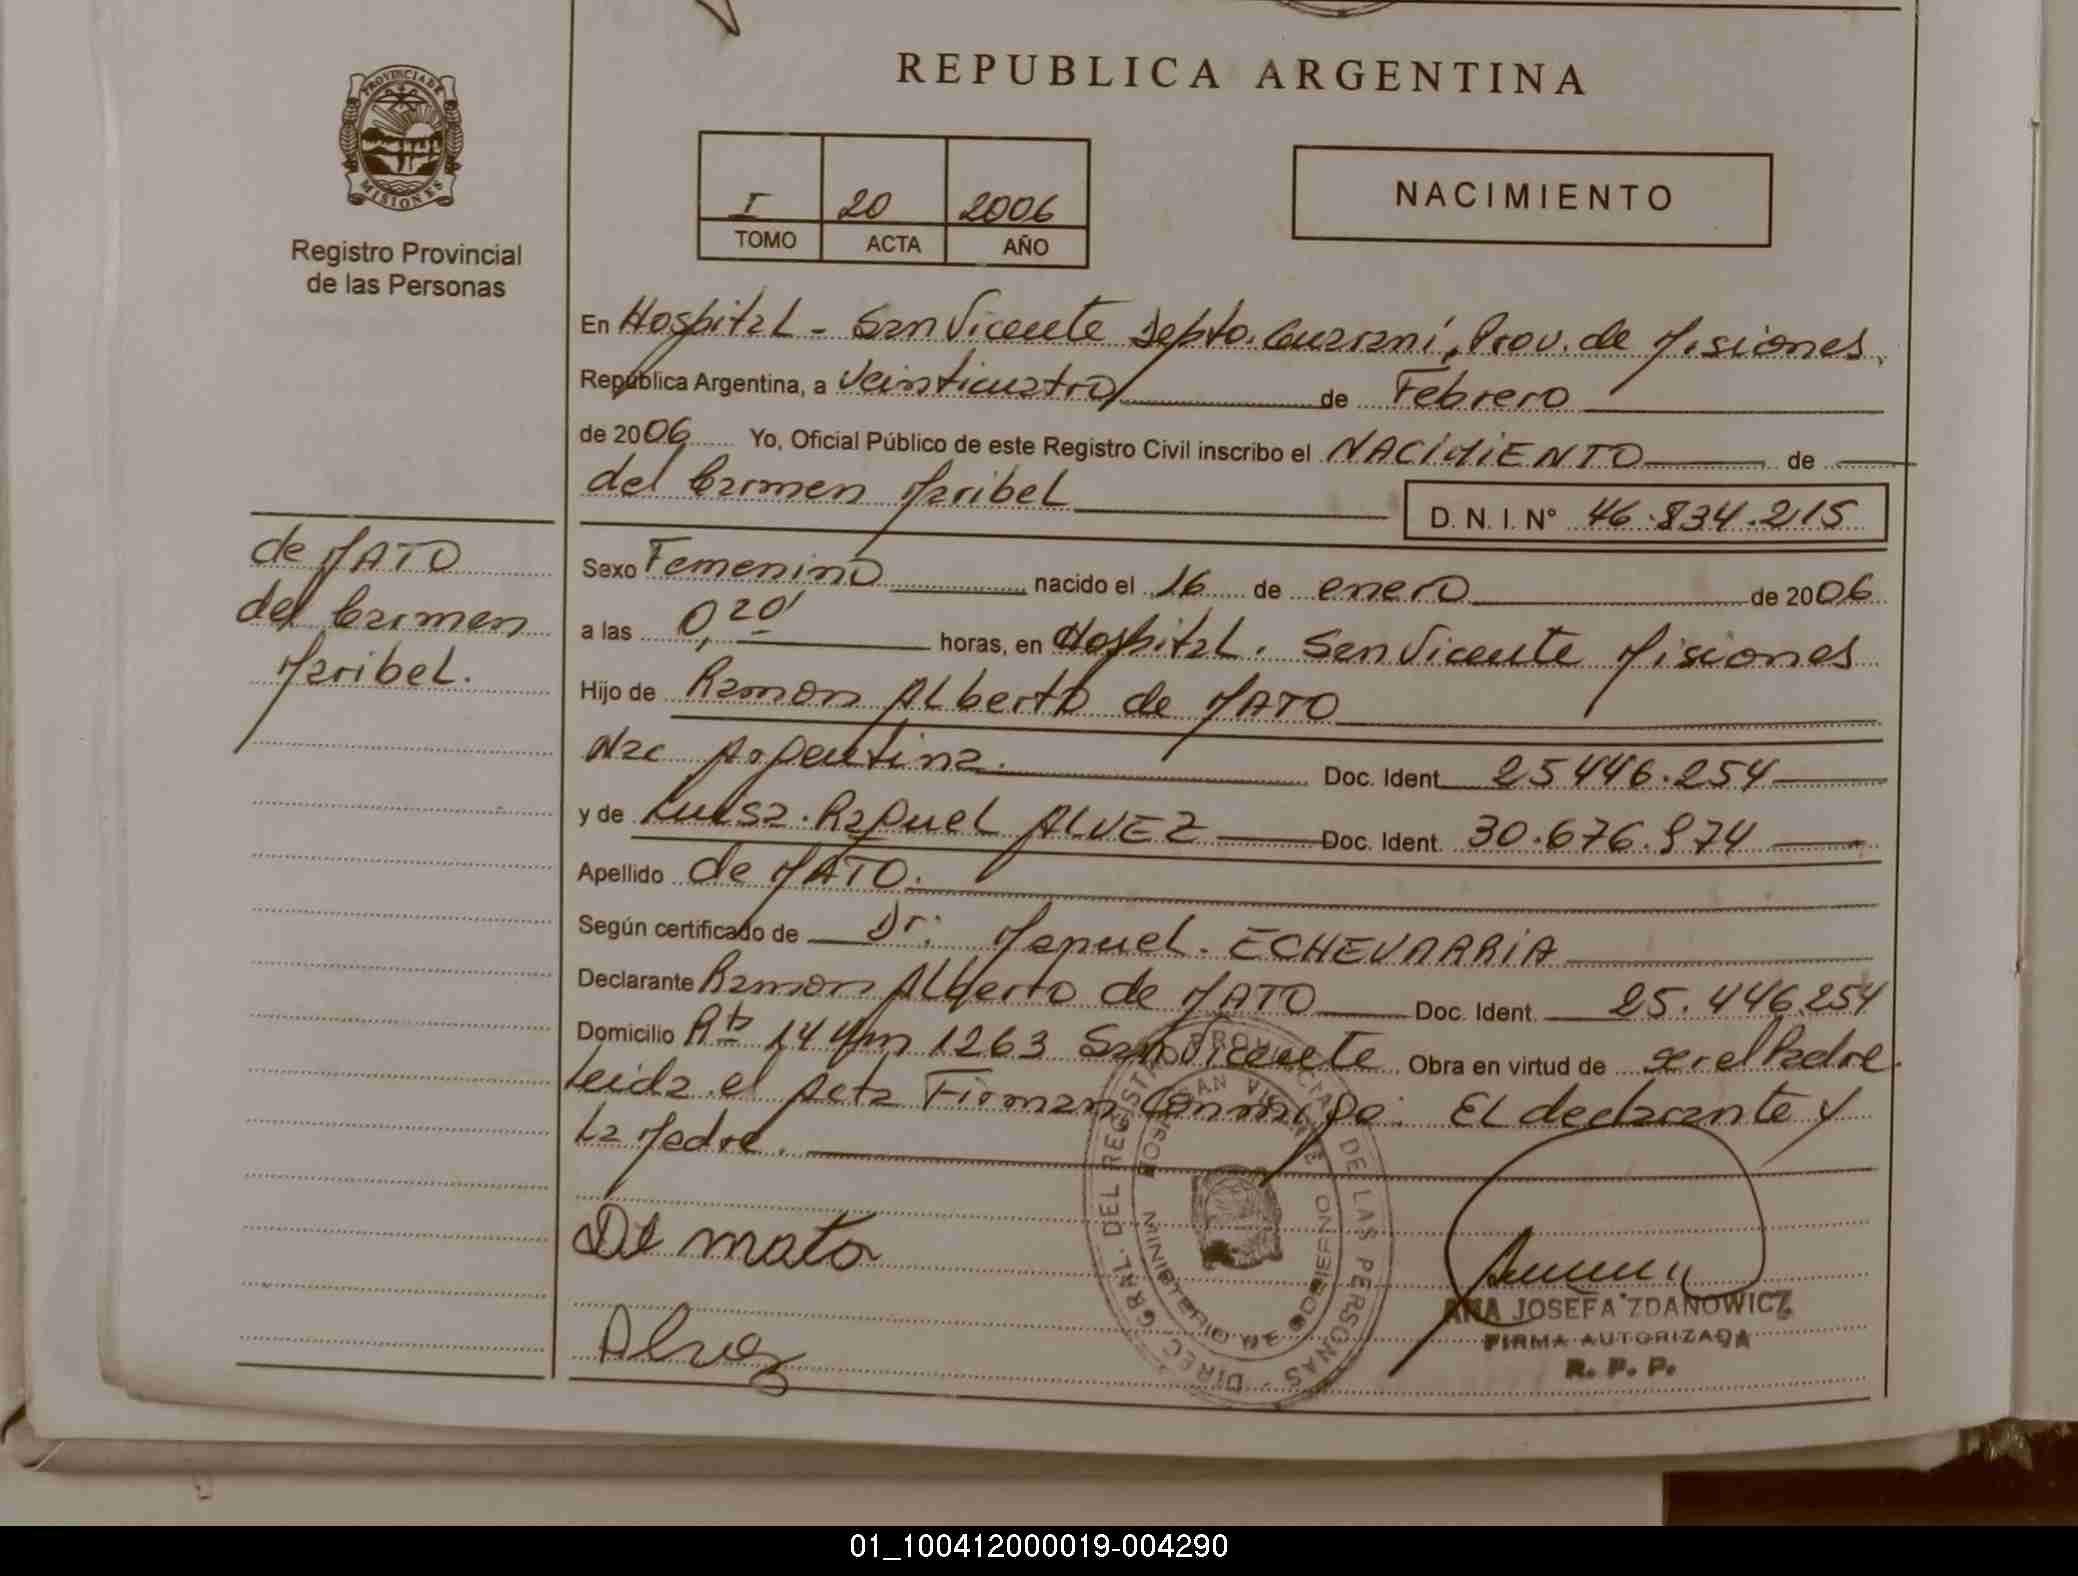 REPUBLICA ARGENTINA
PROVINCIA DE
MISIONES
Registro Provincial
de las Personas
I 20 2006
TOMO ACTA AÑO
NACIMIENTO
En Hospital - San Vicente Depto. Guaraní, Prov. de Misiones,
República Argentina, a Veinticuatro de Febrero
de 2006 Yo, Oficial Público de este Registro Civil inscribo el NACIMIENTO de
del Carmen Maribel
D. N. I. Nº 46.834.215
de MATO
del Carmen
Maribel.
Sexo Femenino nacido el 16 de enero de 2006
a las 0,20' horas, en Hospital. San Vicente Misiones
Hijo de Ramon Alberto de MATO
Nac Argentina. Doc. Ident. 25446.254
y de Luisa. Raquel ALVEZ Doc. Ident. 30.676.974
Apellido de MATO.
Según certificado de Dr. Manuel. ECHEVARRIA
Declarante Ramon Alberto de MATO Doc. Ident. 25.446.254
Domicilio Rta 14 Km 1263 San Vicente Obra en virtud de ser el Padre.
Leida el Acta Firman Conmigo: El declarante y
La Madre.
DIREC. GRAL. DEL REGISTRO PROVINCIAL DE LAS PERSONAS -
HOSP. SAN VICENTE
MINISTERIO DE GOBIERNO
De mato
Alvez
ANA JOSEFA ZDANOWICZ
FIRMA AUTORIZADA
R. P. P.
01_100412000019-004290